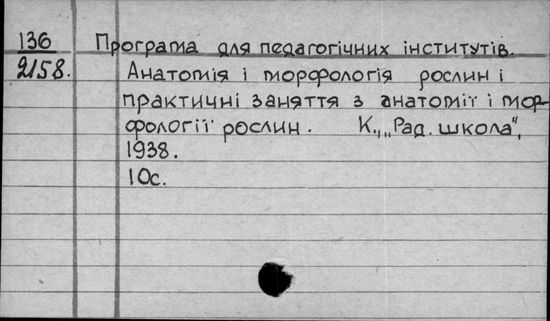 136 Програма для педагогічних інститутів.
2158. Анатомія і морфологія рослин і
практичні заняття з анатомії і мор-
фології рослин. К., „Рад. школа",
1938.
10с.